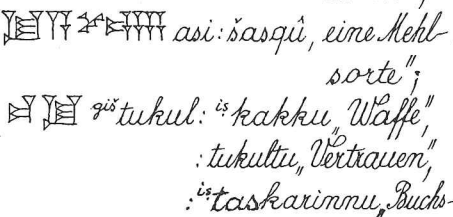 𒆪 𒀀 asi: šasqû, eine Mehl-
sorte";
𒄑 𒆪 ᵍⁱˢ̌tukul: ⁱṣkakku „Waffe",
: tukultu „Vertrauen",
: ⁱṣtaskarinnu „Buchs-